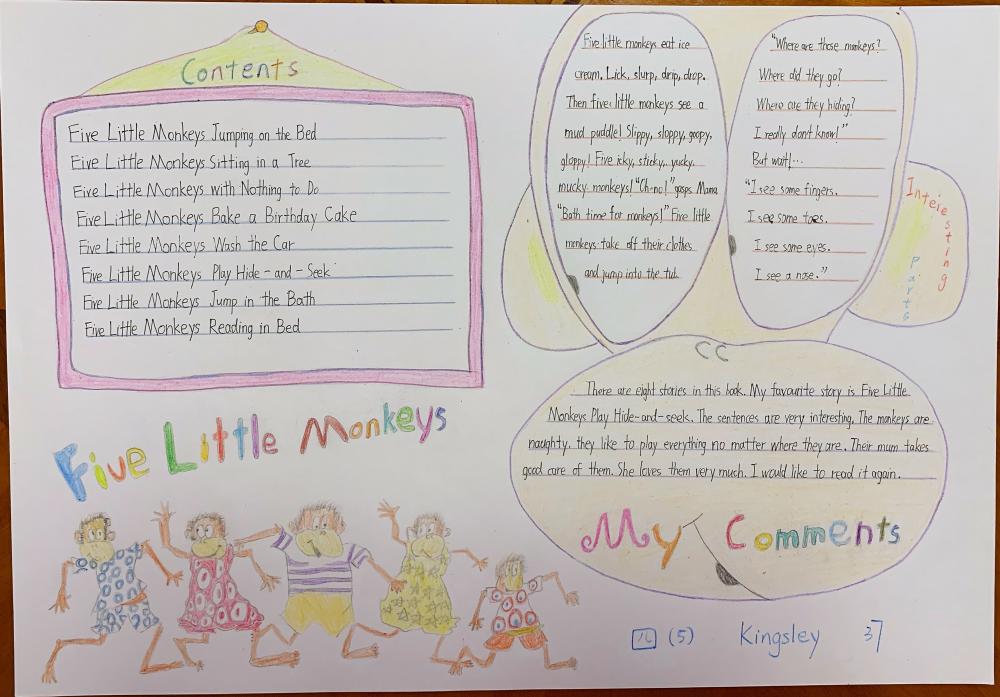 Contents
Five Little Monkeys Jumping on the Bed
Five Little Monkeys Sitting in a Tree
Five Little Monkeys with Nothing to Do
Five Little Monkeys Bake a Birthday Cake
Five Little Monkeys Wash the Car
Five Little Monkeys Play Hide-and-Seek
Five Little Monkeys Jump in the Bath
Five Little Monkeys Reading in Bed
Five Little Monkeys
Five little monkeys eat ice
cream. Lick, slurp, drip, drop.
Then five little monkeys see a
mud puddle! Slippy, sloppy, goopy,
gloppy! Five icky, sticky, yucky,
mucky monkeys! "Oh-no!" gasps Mama
"Bath time for monkeys!" Five little
monkeys take off their clothes
and jump into the tub.
"Where are those monkeys?
Where did they go?
Where are they hiding?
I really don't know!"
But wait!...
"I see some fingers.
I see some toes.
I see some eyes.
I see a nose."
Interesting
Parts
There are eight stories in this book. My favourite story is Five Little
Monkeys Play Hide-and-seek. The sentences are very interesting. The monkeys are
naughty. they like to play everything no matter where they are. Their mum takes
good care of them. She loves them very much. I would like to read it again.
My Comments
(5) Kingsley 37